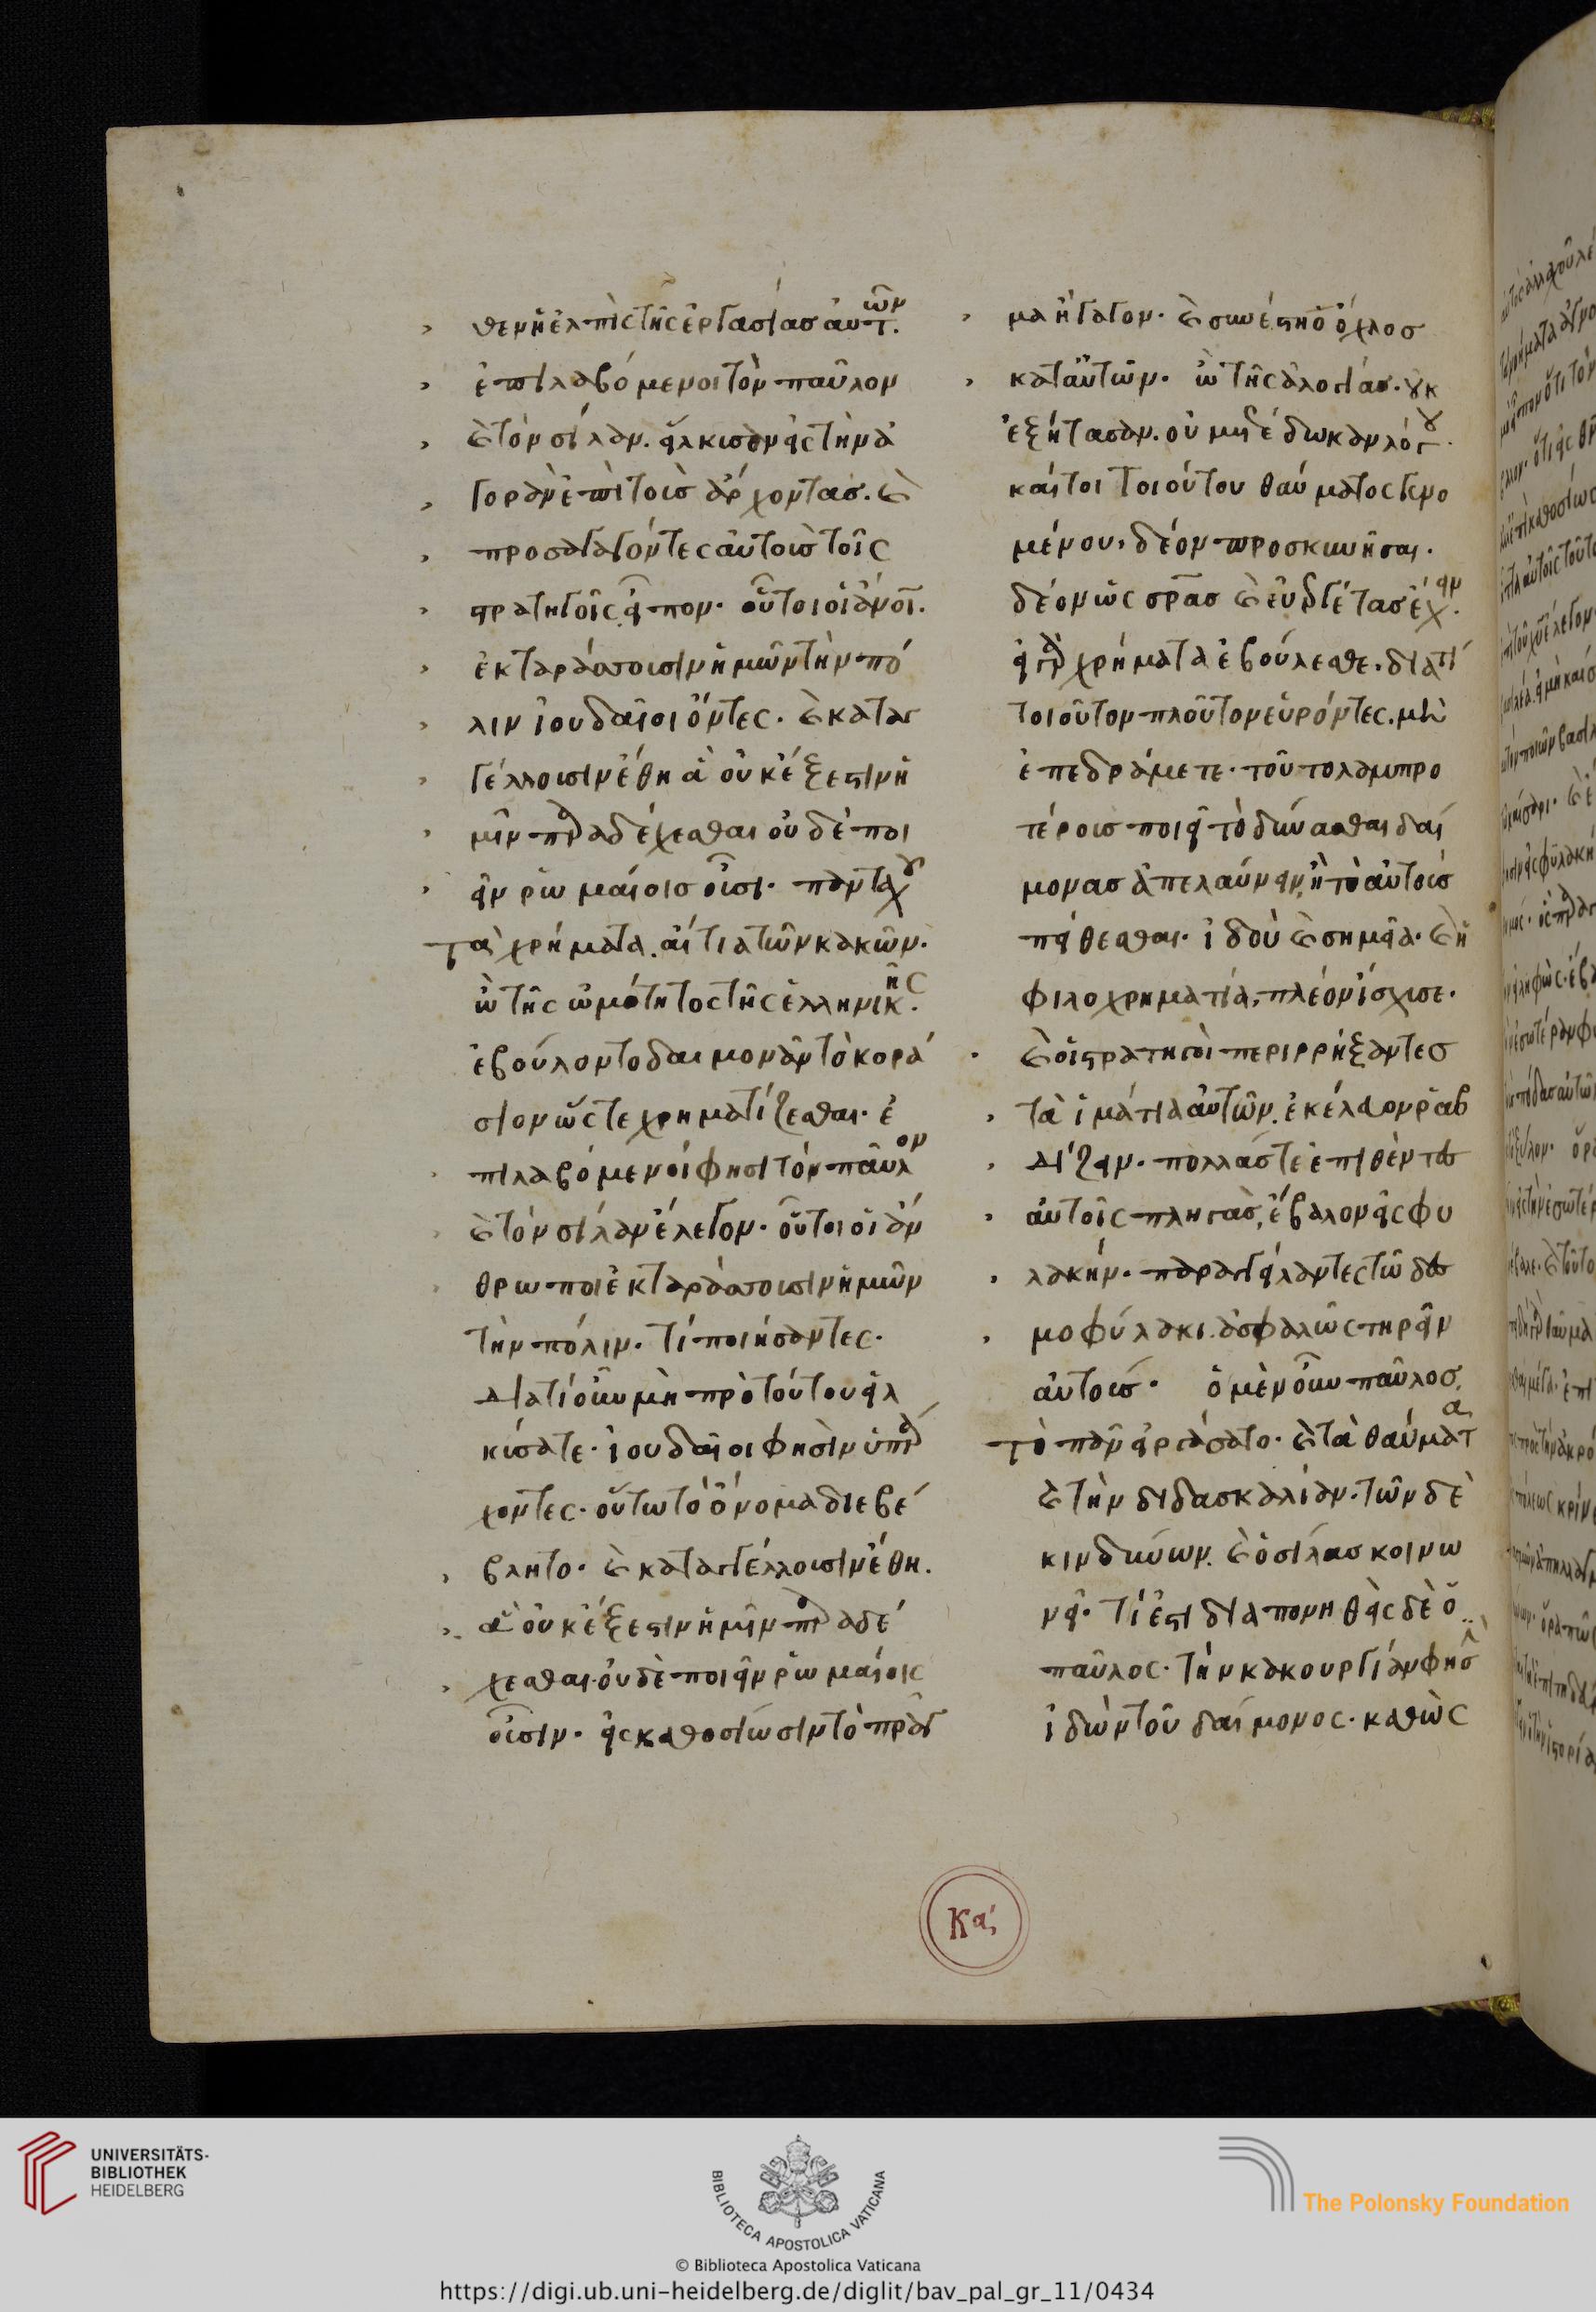 θεν ἡ ἐλπὶς τῆς ἐργασίας αὐτῶν.
ἐπιλαβόμενοι τὸν παῦλον
καὶ τὸν σίλαν. εἵλκισαν εἰς τὴν ἀ
γορὰν ἐπὶ τοὺς ἄρχοντας. καὶ
προσαγαγόντες αὐτοὺς τοῖς
στρατηγοῖς εἶπον. οὗτοι οἱ ἄνοι.
ἐκταράσσουσιν ἡμῶν τὴν πό
λιν ἰουδαῖοι ὄντες. καὶ καταγ
γέλλουσιν ἔθη ἃ οὐκ ἔξεστιν ἡ
μῖν παραδέχεσθαι οὐδὲ ποι
εῖν ρωμαίοις οὖσι. πανταχοῦ
τὰ χρήματα. αἴτια τῶν κακῶν.
ὢ τῆς ὠμότητος τῆς ἑλληνικῆς.
ἐβούλοντο δαιμονᾶν τὸ κορά
σιον ὥστε χρηματίζεσθαι. ἐ
πιλαβόμενοί φησι τὸν παῦλον
καὶ τὸν σίλαν ἔλεγον. οὗτοι οἱ ἄν
θρωποι ἐκταράσσουσιν ἡμῶν
τὴν πόλιν. τί ποιήσαντες.
διατί οὖν μὴ πρὸ τούτου εἱλ
κύσατε. ἰουδαῖοι φησὶν ὑπάρ
χοντες. οὕτω τὸ ὄνομα διεβέ
βλητο. καὶ καταγγέλλουσιν ἔθη.
ἃ οὐκ ἔξεστιν ἡμῖν παραδέ
χεσθαι. οὐδὲ ποιεῖν ρωμαίοις
οὖσιν. εἰς καθοσίωσιν τὸ πρᾶγ
μα ἤγαγον. καὶ συνέστη ὁ ὄχλος
κατ αὐτῶν. ὢ τῆς ἀλογίας. οὐκ
ἐξήτασαν. οὐ μὴν ἔδωκαν λόγου.
καίτοι τοιούτου θαύματος γενο
μένου, δέον προσκυνῆσαι.
δέον ὡς σρας καὶ εὐεργέτας ἔχειν.
εἰ γὰρ χρήματα ἐβούλεσθε. διατί
τοιοῦτον πλοῦτον εὑρόντες. μὴ
ἐπεδράμετε. τοῦτο λαμπρο
τέρους ποιεῖ τὸ δύνασθαι δαί
μονας ἀπελαύνειν, ἢ τὸ αὐτοῖς
πείθεσθαι. ἰδοὺ καὶ σημεῖα. καὶ ἡ
φιλοχρηματία, πλέον ἴσχυσε.
καὶ οἱ στρατηγοὶ περιρρήξαντες
τὰ ἱμάτια αὐτῶν. ἐκέλευον ῥαβ
δίζειν. πολλάς τε ἐπιθέντες
αὐτοῖς πληγὰς, ἔβαλον εἰς φυ
λακήν. παραγγείλαντες τῷ δεσ
μοφύλακι. ἀσφαλῶς τηρεῖν
αὐτούς. ὁ μὲν οὖν παῦλος.
τὸ πᾶν εἰργάσατο. καὶ τὰ θαύματα
καὶ τὴν διδασκαλίαν. τῶν δὲ
κινδύνων. καὶ ὁ σίλας κοινω
νεῖ. τί ἐστι διαπονηθεὶς δὲ ὁ
παῦλος. τὴν κακουργίαν φησὶν
ἰδὼν τοῦ δαίμονος. καθὼς
κα
UNIVERSITÄTS-
BIBLIOTHEK
HEIDELBERG
BIBLIOTECA APOSTOLICA VATICANA
© Biblioteca Apostolica Vaticana
The Polonsky Foundation
https://digi.ub.uni-heidelberg.de/diglit/bav_pal_gr_11/0434